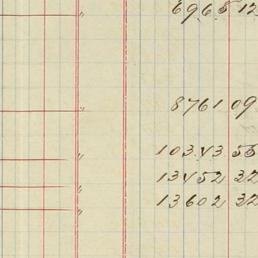 " 6965 12
" 8761 09
" 10343 55
" 13452 32
" 13602 32